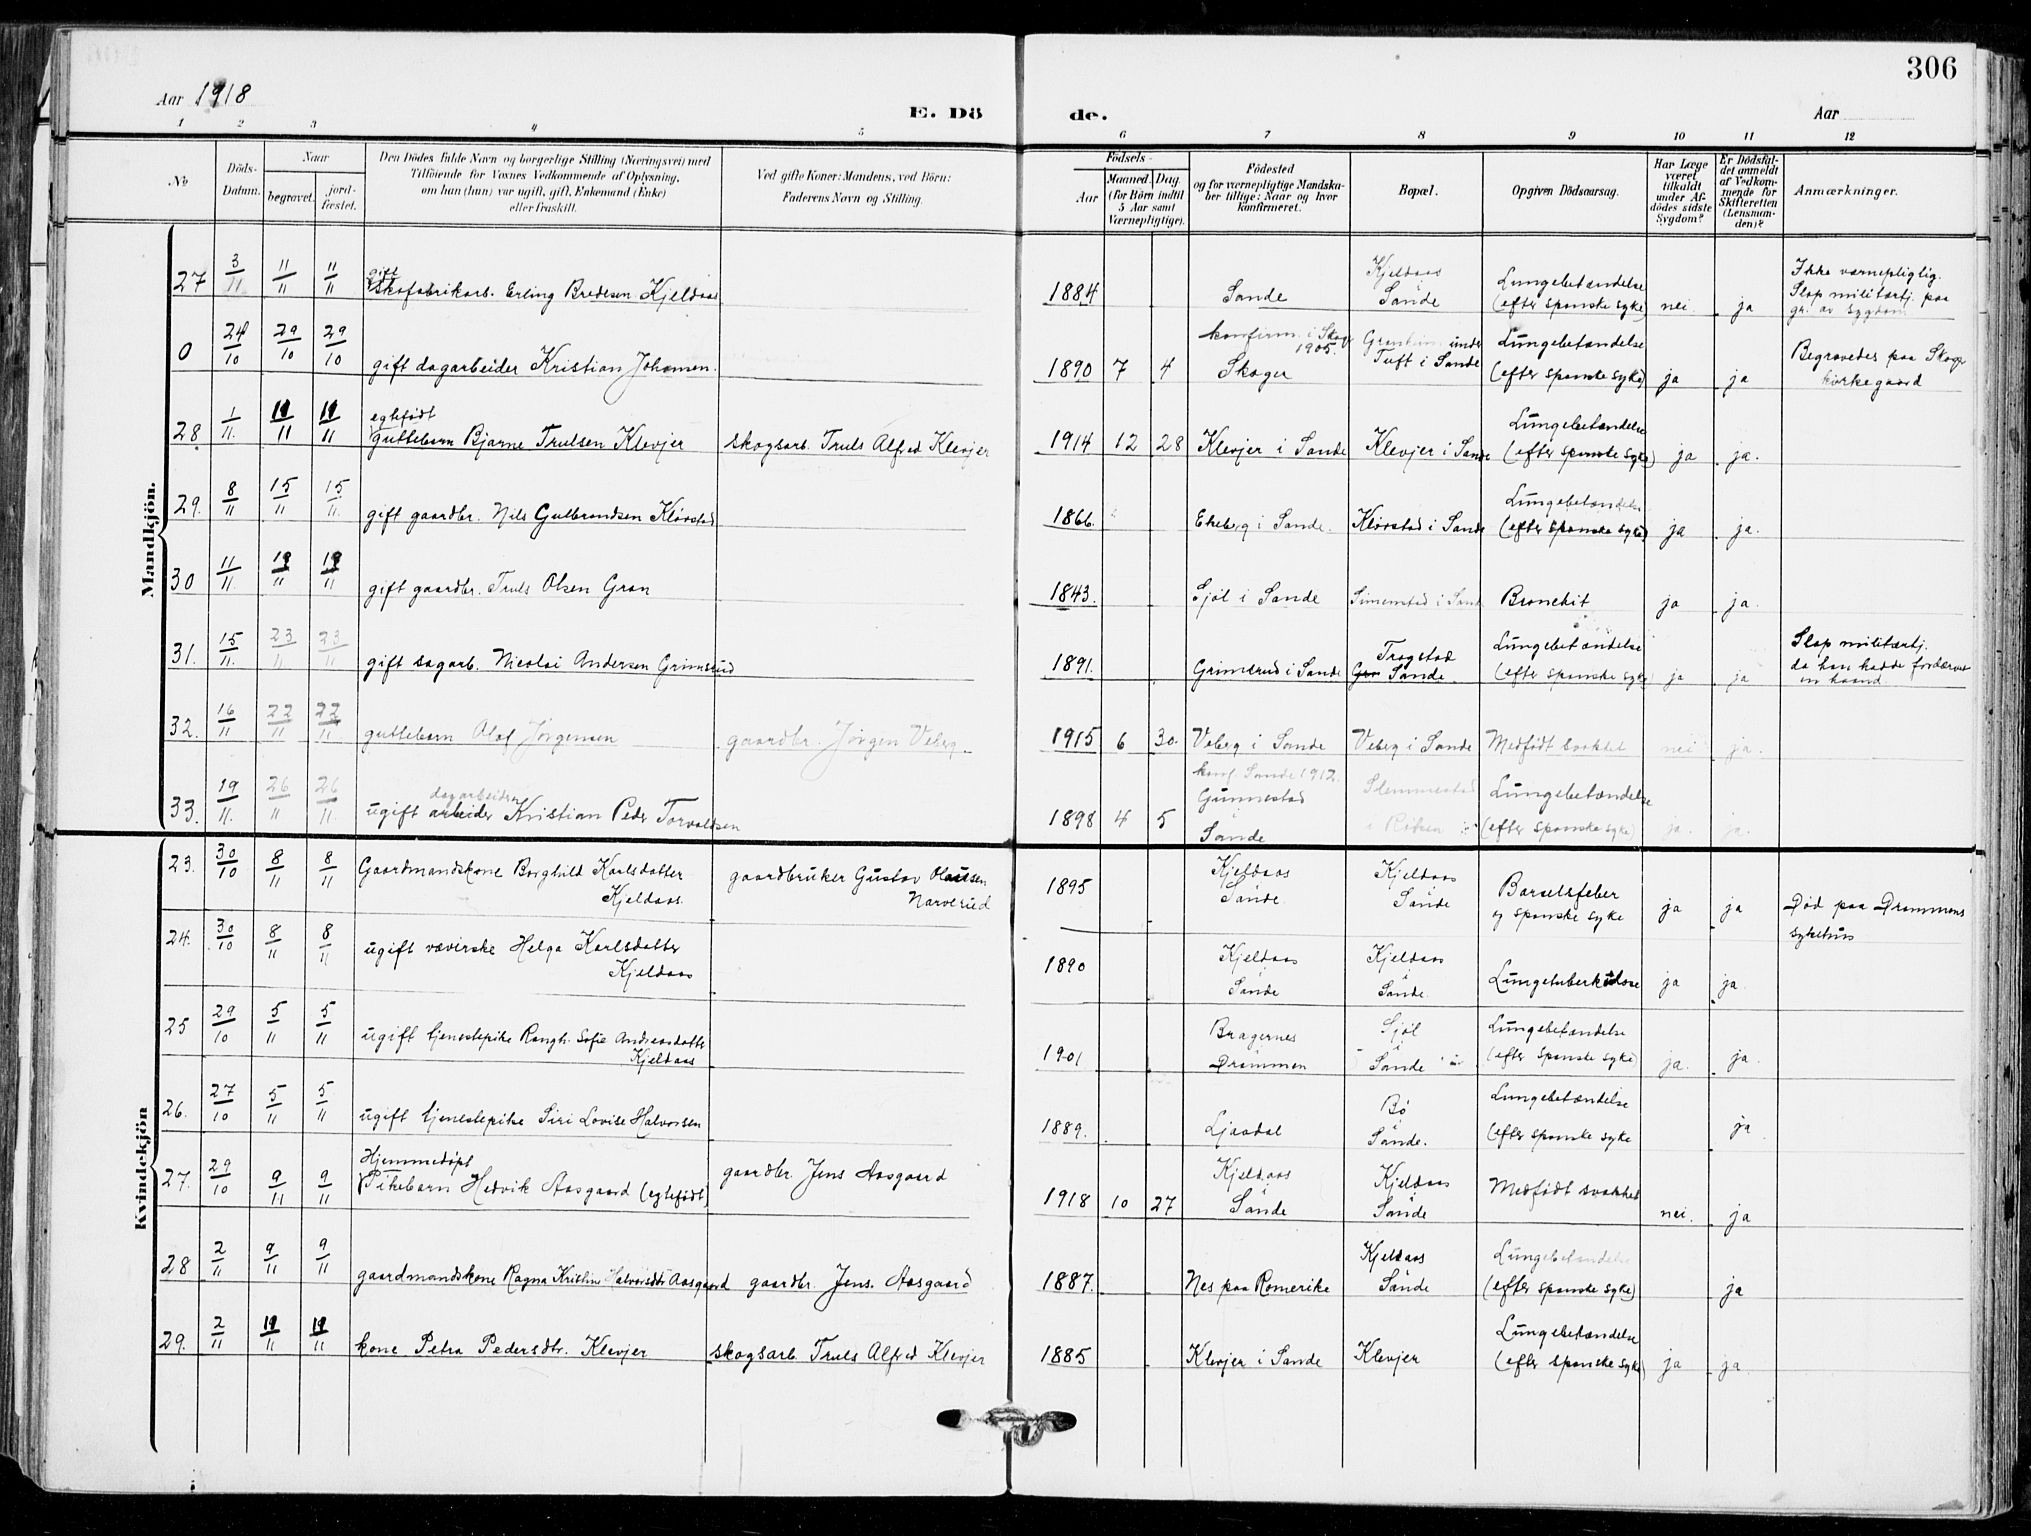 306
Aar 1918
E. Dö
de.
Aar
1 2 3 4 5 6 7 8 9 10 11 12
No
Döds-Datum.
Naar
begravet.
jord-fæstet.
Den Dödes fulde Navn og borgerlige Stilling (Næringsvei) med
Tilföiende for Voxnes Vedkommende af Oplysning,
om han (hun) var ugift, gift, Enkemand (Enke)
eller fraskilt.
Ved gifte Koner: Mandens, ved Börn:
Faderens Navn og Stilling.
Födsels-
Aar
Maaned. Dag.
(for Börn indtil
5 Aar samt
Værnepligtige).
Födested
og for værnepligtige Mandska-
ber tillige: Naar og hvor
konfirmeret.
Bopæl.
Opgiven Dödsaarsag.
Har Læge
været
tilkaldt
under Af-
dödes sidste
Sygdom?
Er Dödsfal-
det anmeldt
af Vedkom-
mende for
Skifteretten
(Lensman-
den)?
Anmærkninger.
Mandkjön.
27 3/11 11/11 11/11 gift skofabrikarb. Erling Bredesen Kjeldaas 1884 Sande Kjeldaas Sande Lungebetændelse (efter spanske syke) nei. ja Ikke værnepligtig. Slap militærtj. paa gr. av sygdom
0 24/10 29/10 29/10 gift dagarbeider Kristian Johansen. 1890 7 4 konfirm. i Skoger 1905. Skoger under Tuft i Sande Lungebetændelse (efter spanske syke) ja ja Begravedes paa Skoger kirkegaard
28. 1/11. 11/11 11/11 egtefødt guttebarn Bjarne Trulsen Klevjer skogsarb. Truls Alfred Klevjer 1914 12 28 Klevjer i Sande Klevjer i Sande Lungebetændelse (efter spanske syke) ja ja.
29. 8/11 15/11 15/11. gift gaardbr. Nils Gulbrandsen Kløvstad 1866. Ekeberg i Sande. Kløvstad i Sande Lungebetændelse (efter spanske syke) ja ja.
30 11/11 19/11 19/11 gift gaardbr. Truls Olsen Gran 1843. Sjøl i Sande Simenstad i Sande Bronchit ja ja.
31. 15/11. 23/11 23/11 gift sagarb. Nicolai Andersen Grimsrud 1891. Grimsrud i Sande Trogstad Sande Lungebetændelse (efter spanske syke) ja ja Slap militærtj. da han hadde fordærvet en haand
32. 16/11 22/11 22/11 guttebarn Olaf Jørgensen gaardbr. Jørgen Veberg 1915 6 30. Veberg i Sande Veberg i Sande Medfødt svakhet nei ja.
33. 19/11. 26/11 26/11. ugift dagarbeider arbeider Kristian Peder Torvaldsen 1898 4 5 konf. Sande 1912. Gunnestad Sande Slemmestad i Røken Lungebetændelse (efter spanske syke) ja. ja.
Kvindekjön
23. 30/10 8/11 8/11 Gaardmandskone Borghild Karlsdatter Kjeldaas. gaardbruker Gustav Olausen Narverud 1895 Kjeldaas Sande. Kjeldaas Sande Barselsfeber og spanske syke ja ja Død paa Drammens sykehus
24. 30/10 8/11 8/11 ugift væverske Helga Karlsdatter Kjeldaas 1890 Kjeldaas Sande Kjeldaas Sande. Lungetuberkulose ja ja.
25 29/10 5/11 5/11 ugift tjenestepike Rangh. Sofie Andreasdatter Kjeldaas 1901 Bragernes Drammen Sjøl Sande Lungebetændelse (efter spanske syke) ja. ja.
26. 27/10 5/11 5/11 ugift tjenestepike Siri Lovise Halvorsen 1889. Ljaadal Bø Sande. Lungebetændelse (efter spanske syke ja
27. 29/10 9/11 9/11 Hjemmedøpt Pikebarn Hedvik Aasgaard (egtefødt) gaardbr. Jens Aasgaard 1918 10 27 Kjeldaas Sande Kjeldaas Sande Medfødt svakhet nei. ja
28 2/11 9/11 9/11 gaardmandskone Ragna Kristine Halvorsdtr Aasgaard gaardbr. Jens Aasgaard 1887. Nes paa Romerike Kjeldaas Sande Lungebetændelse (efter spanske syke) ja
29. 2/11 11/11 11/11 kone Petra Pedersdtr. Klevjer skogsarb. Truls Alfred Klevjer 1885 Klevjer i Sande Klevjer Lungebetændelse (efter spanske syke) ja ja.